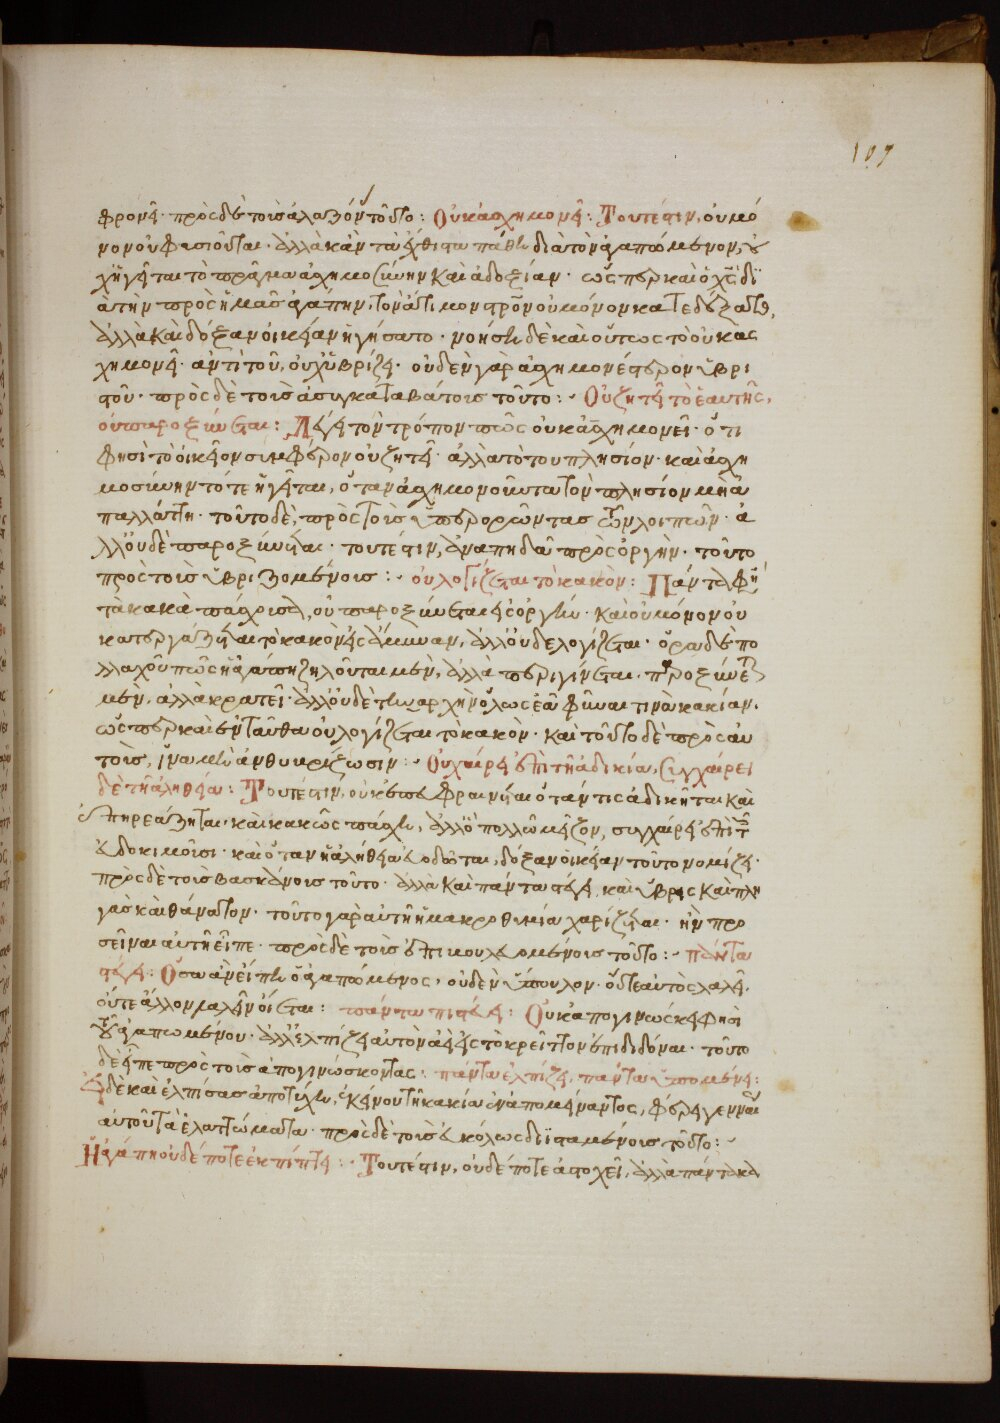 107
φρονεῖ· πρὸς δὲ τοὺς ἀλαζόνας τοῦτο: Οὐκ ἀσχημονεῖ: Τουτέστιν, οὐ μό
νον οὐ φυσιοῦται· ἀλλὰ κἂν τὰ αἴσχιστα πάθῃ διὰ τὸν ἀγαπώμενον, οὐ
χ ἡγεῖται τὸ πρᾶγμα ἀσχημοσύνην καὶ ἀδοξίαν· ὥσπερ καὶ ὁ χς δι
ὰ τὴν πρὸς ἡμᾶς ἀγάπην, τὸν ἄτιμον σταυρὸν οὐ μόνον κατεδέξατο,
ἀλλὰ καὶ δόξαν οἰκείαν ἡγήσατο· νοήσῃ δὲ καὶ οὕτως τὸ οὐκ ἀσ
χημονεῖ· ἀντὶ τοῦ, οὐχ ὑβρίζει· οὐδὲν γὰρ ἀσχημονέστερον ὑβρι
στοῦ· πρὸς δὲ τοὺς ἀσυγκαταβάτους τοῦτο: Οὐ ζητεῖ τὸ ἑαυτῆς,
οὐ παροξύνεται: Λέγει τὸν τρόπον πῶς οὐκ ἀσχημονεῖ· ὅτι
φησὶ τὸ οἰκεῖον συμφέρον οὐ ζητεῖ· ἀλλὰ τὸ τοῦ πλησίον· καὶ ἀσχη
μοσύνην τότε ἡγεῖται, ὅταν ἀσχημονοῦντα τὸν πλησίον μὴ ἀ
παλλάττῃ· τοῦτο δὲ, πρὸς τοὺς ὑπερορῶντας τῶν λοιπῶν· ἀ
λλ' οὐδὲ παροξύνεται· τουτέστιν, ἀναπηδᾷ πρὸς ὀργήν· τοῦτο
πρὸς τοὺς ὑβριζομένους: οὐ λογίζεται τὸ κακὸν: Πάντα φη
τὰ κακὰ πάσχουσα, οὐ παροξύνεται εἰς ὀργήν· καὶ οὐ μόνον οὐ
κατεργάζεται τὸ κακὸν εἰς ἄμυναν, ἀλλ' οὐδὲ λογίζεται· ὅρα δὲ πο
λλαχοῦ πῶς ἡ ἀγάπη ζηλοῦται μὲν, ἀλλὰ περιγίνεται· παροξύνεται
μὲν, ἀλλὰ κρατεῖ· ἀλλ' οὐδὲ τὴν ἀρχὴν ὅλως ἐᾷ φῦναι τινὰ κακίαν.
ὥσπερ καὶ ἐνταῦθα οὐ λογίζεται τὸ κακὸν· καὶ τοῦτο δὲ πρὸς αὐ
τοὺς, ἵνα μὴ ἀνθυβρίζωσιν: Οὐ χαίρει ἐπὶ τῇ ἀδικίᾳ, συγχαίρει
δὲ τῇ ἀληθείᾳ: Τουτέστιν, οὐκ ἐπευφραίνεται ὅταν τις ἀδικῆται καὶ
ἐπηρεάζηται· καὶ κακῶς πάσχῃ, ἀλλ' ὃ πολλῷ μεῖζον, συγχαίρει ἐπὶ τοῖς
εὐδοκιμοῦσι· καὶ ὅταν ἡ ἀλήθεια εὐοδῶται, δόξαν οἰκείαν τοῦτο νομίζει·
πρὸς δὲ τοὺς βασκάνους τοῦτο· ἀλλὰ καὶ πάντα στέγει, καὶ ὕβρεις καὶ πλη
γὰς καὶ θάνατον· τοῦτο γὰρ αὐτῇ ἡ μακροθυμία χαρίζεται· ἣν προ
σεῖναι αὐτῇ εἶπε· πρὸς δὲ τοὺς ἐπιβουλευομένους τοῦτο: πάντα
στέγει: Ὅσα ἂν εἴπῃ ὁ ἀγαπώμενος, οὐδὲν ὕπουλον· οὔτε αὐτὸς λαλεῖ.
οὔτε ἄλλον λαλεῖν οἴεται: πάντα πιστεύει: Οὐκ ἀπογινώσκει φησὶ
τοῦ ἀγαπωμένου· ἀλλ' ἐλπίζει αὐτὸν ἀεὶ εἰς τὸ κρεῖττον ἐπιδιδόναι· τοῦτο
δὲ εἶπε πρὸς τοὺς ἀπογινώσκοντας: πάντα ἐλπίζει, πάντα ὑπομένει:
Εἰ δὲ καὶ ἐλπίσας ἀποτύχῃ, ἐκείνου τῇ κακίᾳ ἐναπομείναντος, φέρει γενναίως
αὐτοῦ τὰ ἐλαττώματα· πρὸς δὲ τοὺς εὐκόλως διϊσταμένους τοῦτο:
Ἡ ἀγάπη οὐδέποτε ἐκπίπτει: Τουτέστιν, οὐδέποτε ἀστοχεῖ, ἀλλὰ πάντα κα